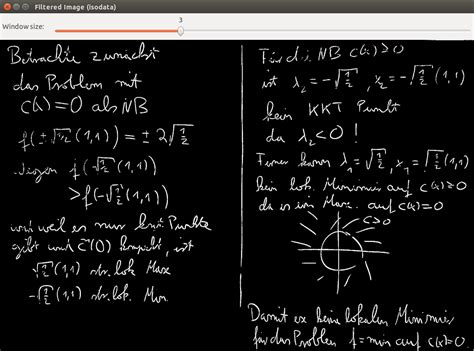 Filtered Image (isodata)
Window size:
3
Betrachte zunächst
das Problem mit
C(x)=0 als NB
f(±√1/2 (1,1)) = ±2√1/2
Wegen f(√1/2 (1,1))
>f(-√1/2 (1,1))
und weil es nur Punkte
gibt und C⁻¹(0) kompakt, ist
√1/2 (1,1) str. lok Max
-√1/2 (1,1) str. lok. Min.
Für d. NB C(x)≥0
ist λ₂=-√1/2, x₂=-√1/2 (1,1)
kein KKT Punkt
da λ₂<0!
Ferner kann λ₁=√1/2, x₁=√1/2 (1,1)
kein lok. Minimum auf C(x)≥0
da es ein Max. auf C(x)=0
C>0
Damit ex keine lokalen Minimier
für das Problem f=min auf C(x)≥0.